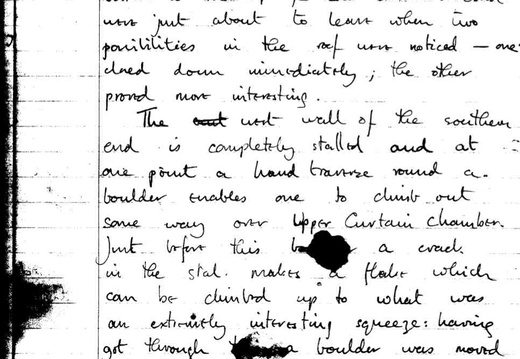 were just about to leave when two
possibilities in the roof were noticed — one
closed down immediately; the other
proved more interesting.
The west wall of the southern
end is completely stalled and at
one point a hand traverse round a
boulder enables one to climb out
some way over Upper Curtain Chamber.
Just before this a crack
in the stal. makes a flake which
can be climbed up to what was
an extremely interesting squeeze: having
got through a boulder was moved